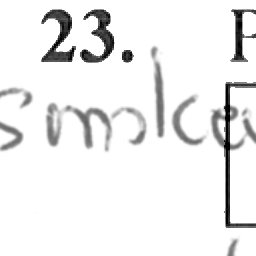 23. P
smoker